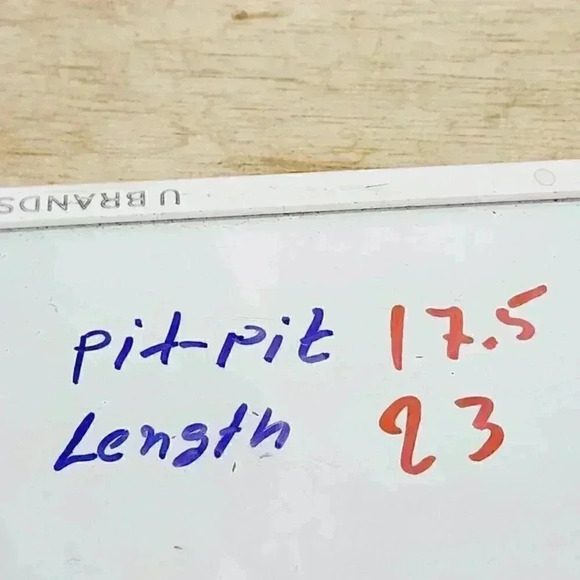 U BRANDS
pit-pit 17.5
Length 23